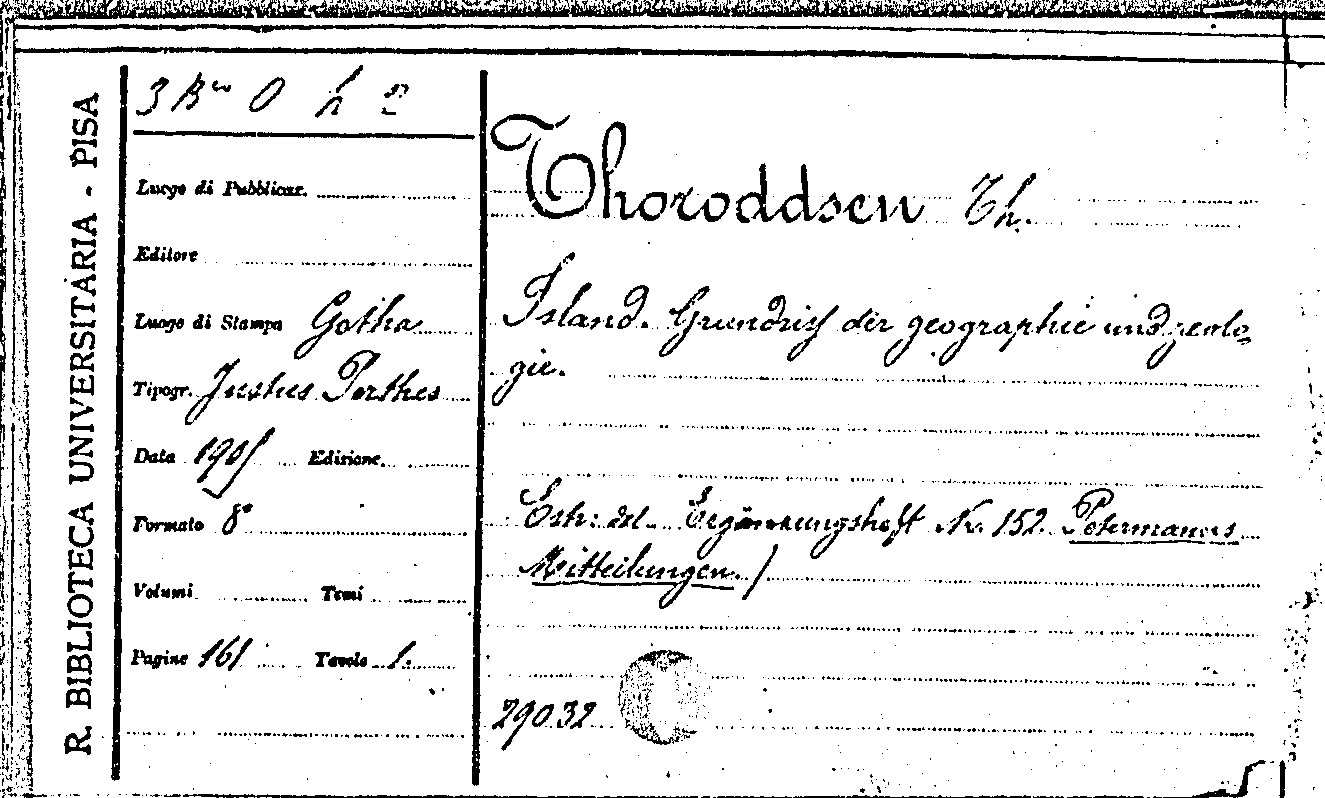 R. BIBLIOTECA UNIVERSITARIA - PISA
O h 2
Luogo di Pubblicaz.
Editore
Luogo di Stampa Gotha
Tipogr. Justus Perthes
Data 1905 Edizione
Formato 8°
Volumi Tomi
Pagine 161 Tavole 1.
Thoroddsen Th.
Island. Grundriss der geographie und geolo-
gie.
Estr: dal Ergänzungsheft Nr. 152. Petermanns
Mitteilungen. )
29032